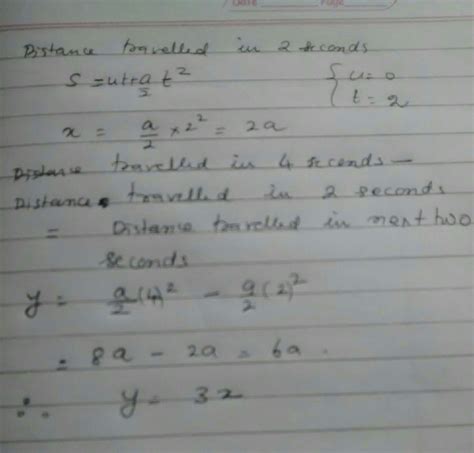 Date Page
Distance travelled in 2 seconds
S = ut + a/2 t² { u = 0
x = a/2 × 2² = 2a { t = 2
Distance travelled in 4 seconds —
Distance travelled in 2 seconds
= Distance travelled in next two
seconds
y = a/2 (4)² - a/2 (2)²
= 8a - 2a = 6a.
∴ y = 3x